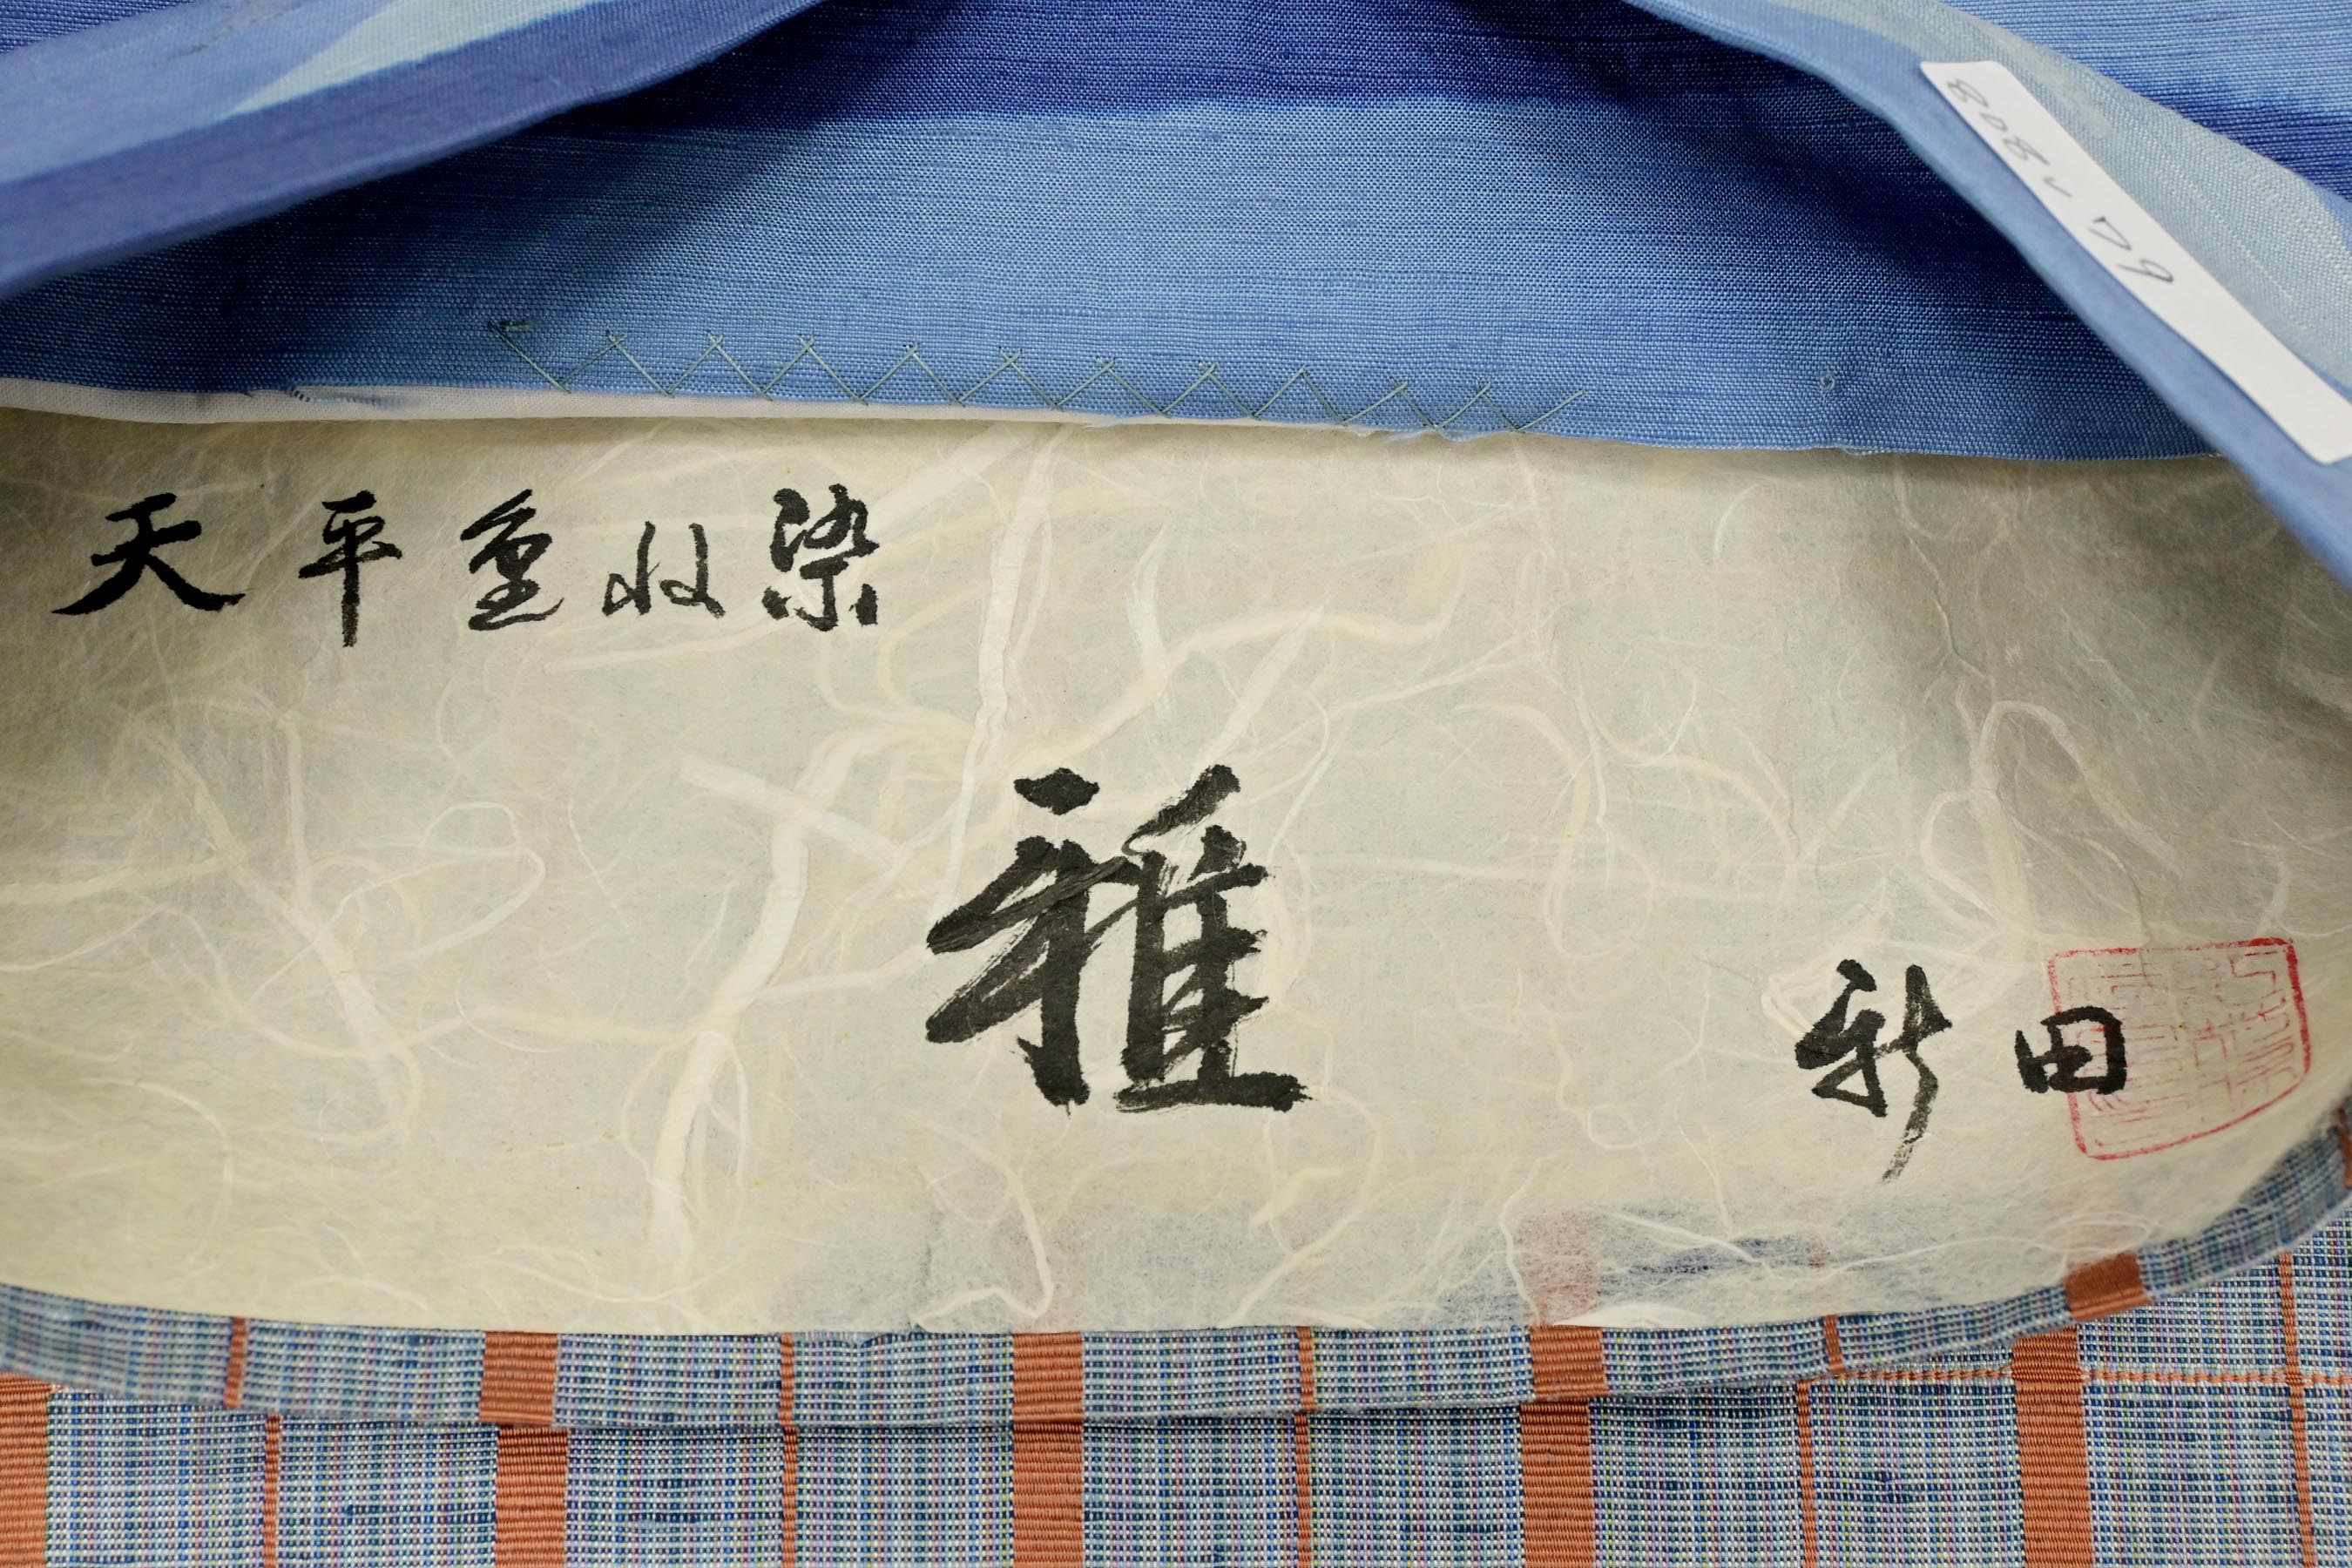 天平重ね染
雅
新田